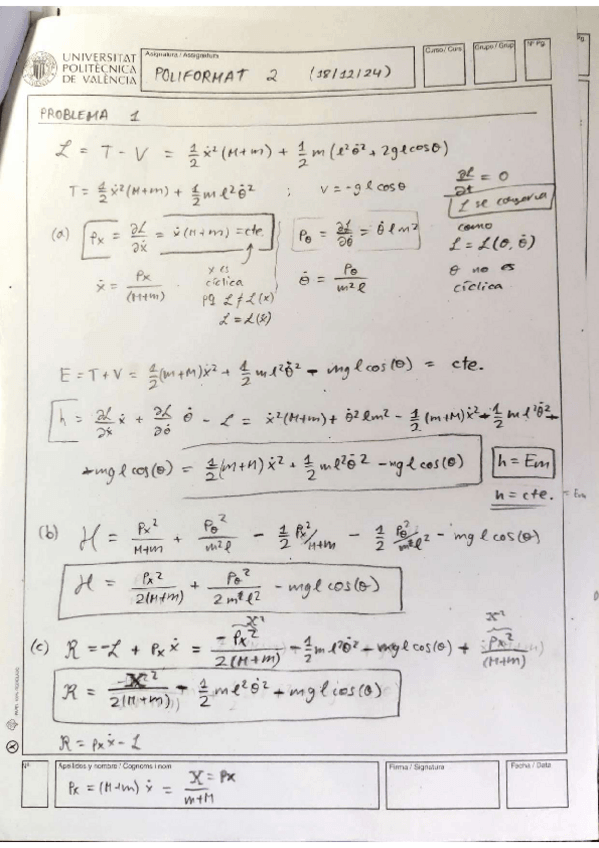 UNIVERSITAT
POLITÈCNICA
DE VALÈNCIA
Asignatura / Assignatura
POLIFORMAT 2 (18/12/24)
Curso / Curs
Grupo / Grup
Nº Pg
PROBLEMA 1
L = T - V = 1/2 ẋ²(M+m) + 1/2 m(l²θ̇² + 2glcosθ)
T = 1/2 ẋ²(M+m) + 1/2 ml²θ̇² ; V = -glcosθ
∂L/∂t = 0
L se conserva
(a) Px = ∂L/∂ẋ = ẋ(M+m) = cte.
Pθ = ∂L/∂θ̇ = θ̇lm²
como
L = L(θ, θ̇)
ẋ = Px/(M+m)
x es
cíclica
pq L ≠ L(x)
L = L(ẋ)
θ̇ = Pθ/m²l
θ no es
cíclica
E = T+V = 1/2(m+M)ẋ² + 1/2 ml²θ̇² - mglcos(θ) = cte.
h = ∂L/∂ẋ ẋ + ∂L/∂θ̇ θ̇ - L = ẋ²(M+m) + θ̇²lm² - 1/2(m+M)ẋ² - 1/2 ml²θ̇² -
- mglcos(θ) = 1/2(m+M)ẋ² + 1/2 ml²θ̇² - mglcos(θ)
h = Em
h = cte. = Em
(b) H = Px²/M+m + Pθ²/m²l - 1/2 Px²/M+m - 1/2 Pθ²/m²l² - mglcos(θ)
H = Px²/2(M+m) + Pθ²/2m²l² - mglcos(θ)
(c) R = -L + Px ẋ = -Px²/2(M+m) - 1/2 ml²θ̇² - mglcos(θ) + Px²/(M+m)
R = X²/2(M+m) - 1/2 ml²θ̇² + mglcos(θ)
R = Pxẋ - L
Apellidos y nombre / Cognoms i nom
Px = (M+m)ẋ = X = Px/m+M
Firma / Signatura
Fecha / Data